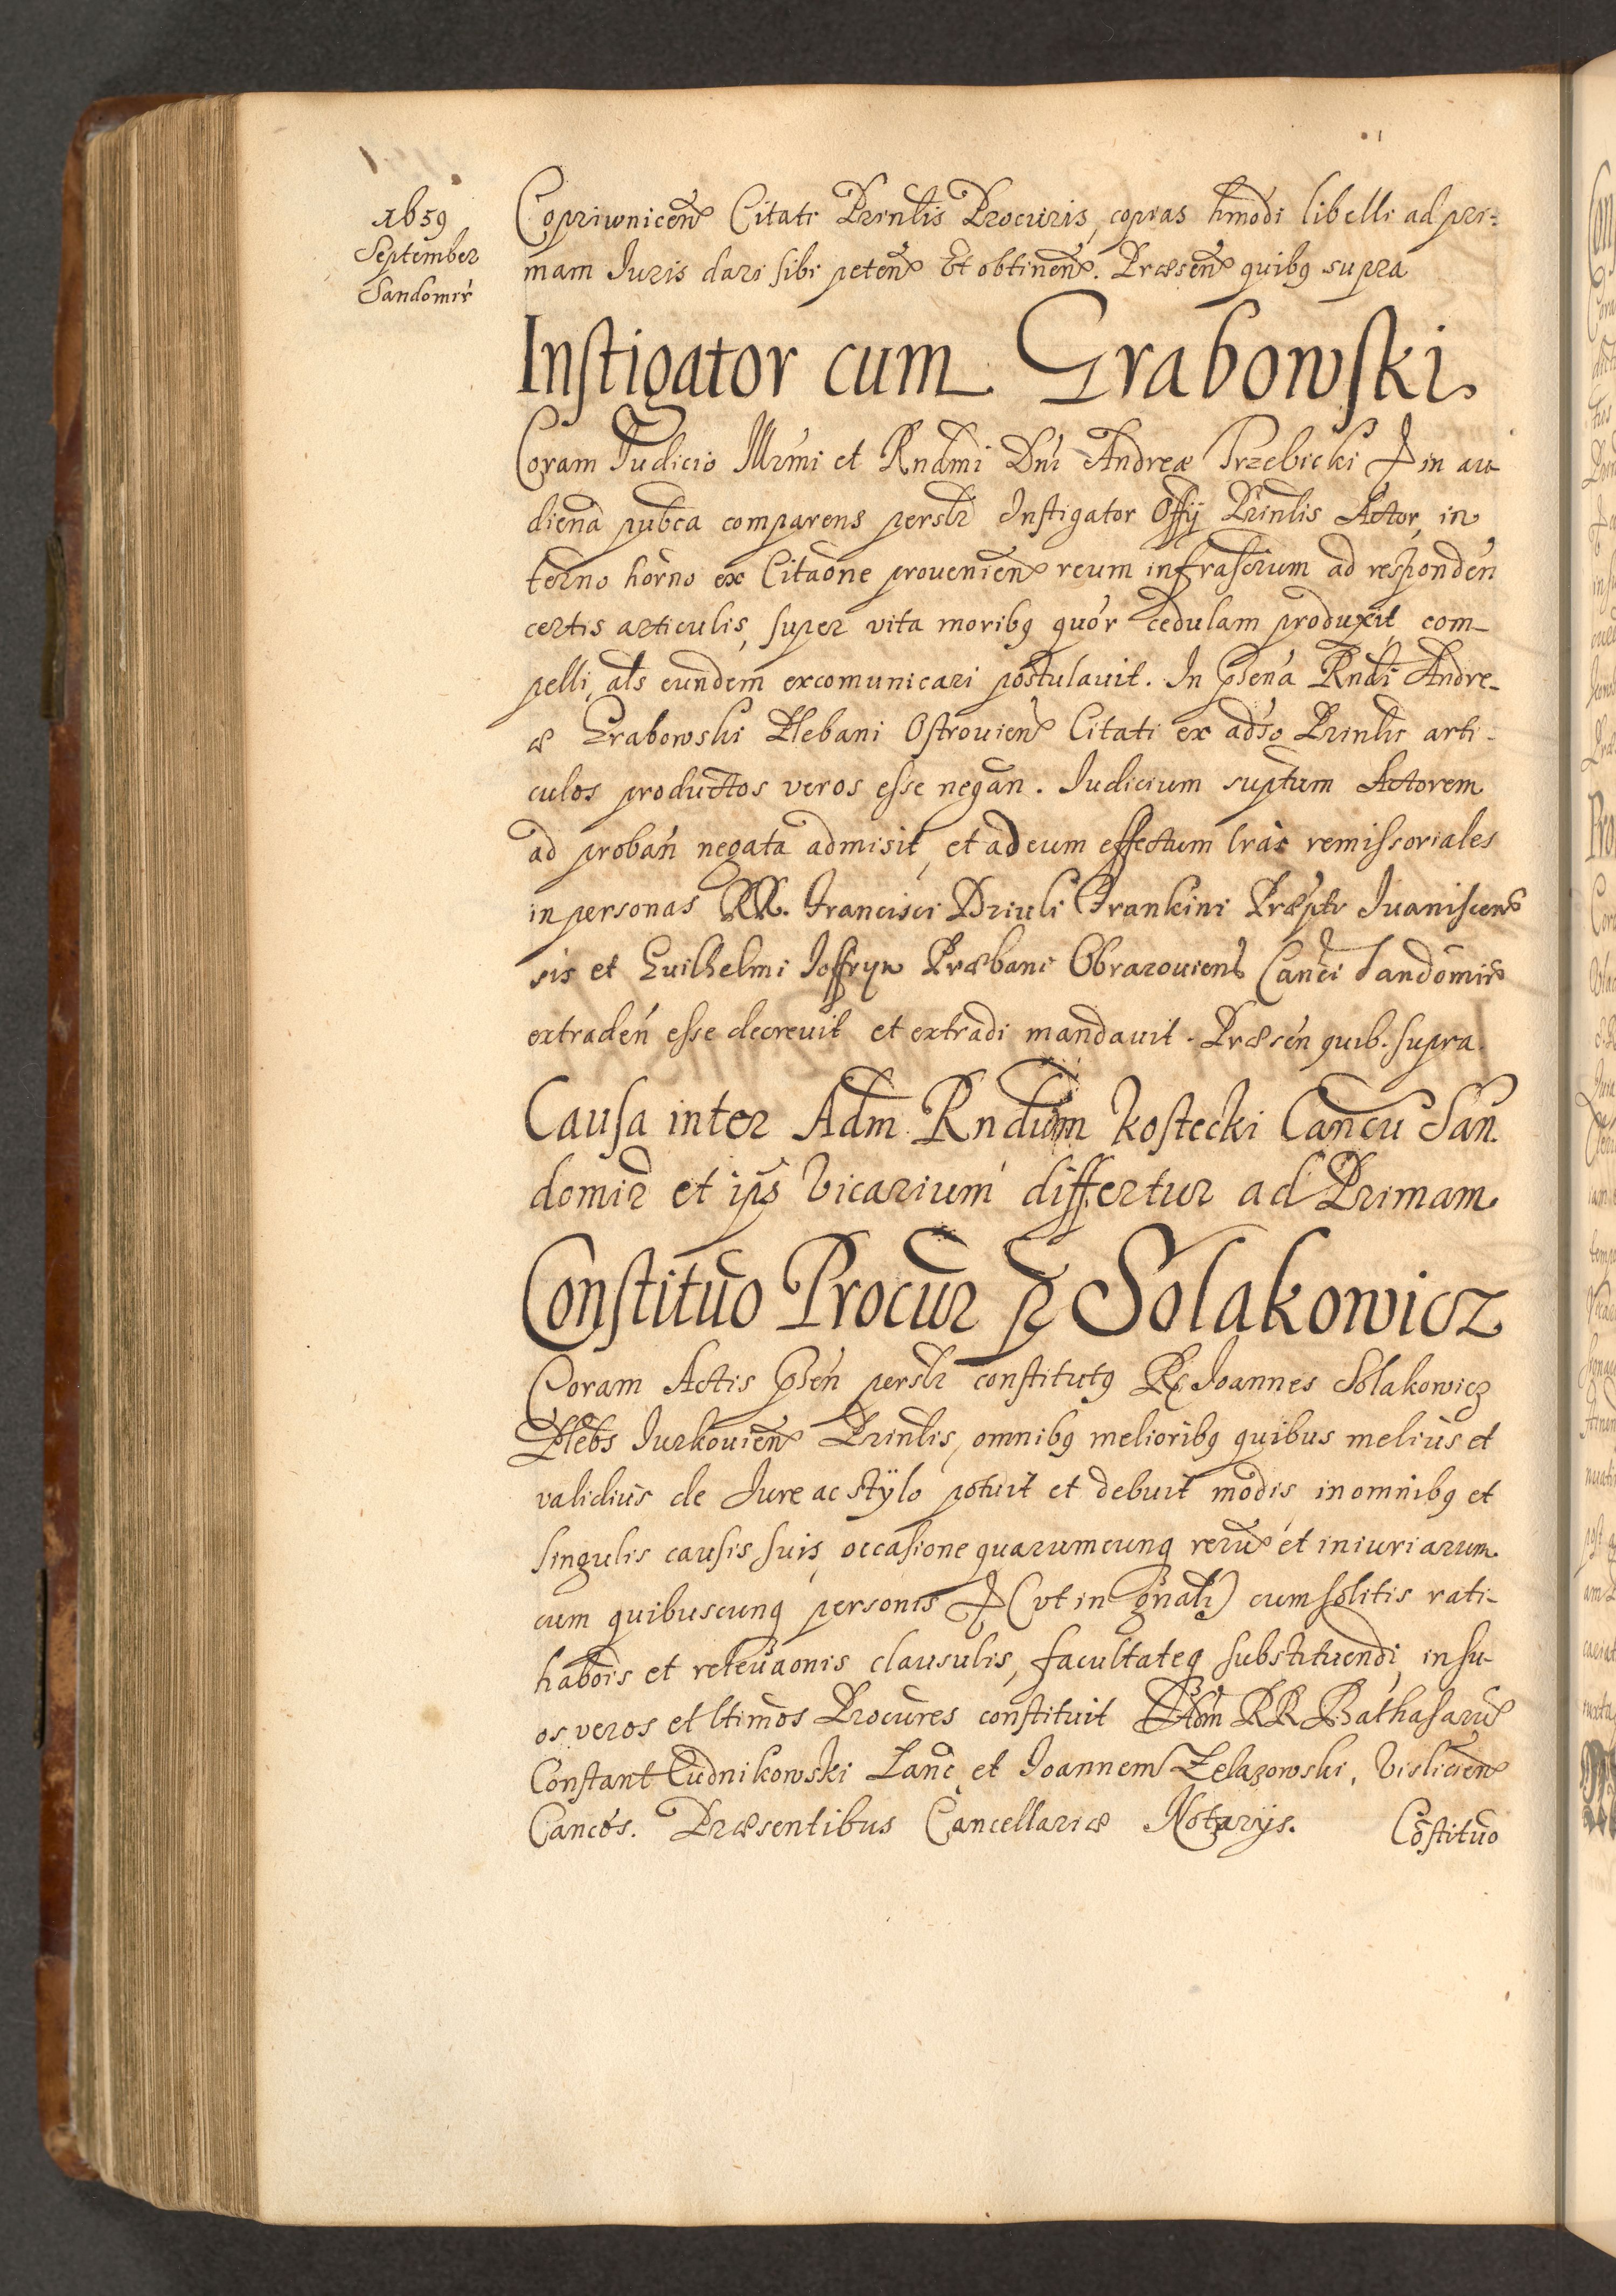 1659
September
Sandomir
Copriwnicen Citati Prinlis Procuris, copias hmodi libelli ad pri-
mam Iuris dari sibi peten Et obtinen. Præsen quibq supra
Instigator cum Grabowski
Coram Iudicio Illrmi et Rndmi Dni Andreæ Trzebicki & in au-
diena pubca comparens perslr Instigator Offij Prinlis Actor, in
terno horno ex Citaone prouenien reum infrascrium ad responden
certis articulis, super vita moribq quor cedulam produxit, com-
pelli, als eundem excomunicari postulauit. In psena Rndi Andre-
æ Grabowski Plebani Ostrouien Citati ex adso Prinlis arti-
culos productos veros esse negan. Iudicium suptum Actorem
ad proban negata admisit, et ad eum effectum lras remissoriales
in personas RR. Francisci Priuli Frankini Præpti Iuaniscen
sis et Guilhelmi Joffryn Præbani Obrazouiens Canci Sandomir
extraden esse decreuit et extradi mandauit. Præsen quib. supra.
Causa inter Adm Rndum Kostecki Cancu San.
domir et ips Vicarium differtur ad Primam
Constituo Procur p Solakowicz
Coram Actis psen perslr constitutq R Joannes Solakowicz
Plebs Iurkouien Prinlis, omnibq melioribq quibus melius et
validius de Iure ac stylo potuit et debuit modis, in omnibq et
singulis causis suis, occasione quarumcunq reru et iniuriarum
cum quibuscunq personis & (vt in gnali) cum solitis rati-
habois et releuaonis clausulis, facultateq substituendi, in su-
os veros et ltimos Procures constituit Adm RR Balthasaru
Constant Ludnikowski Lanc et Joannem Zelazowski, Vislicien
Cancos. Præsentibus Cancellariæ Notarijs. Costituo